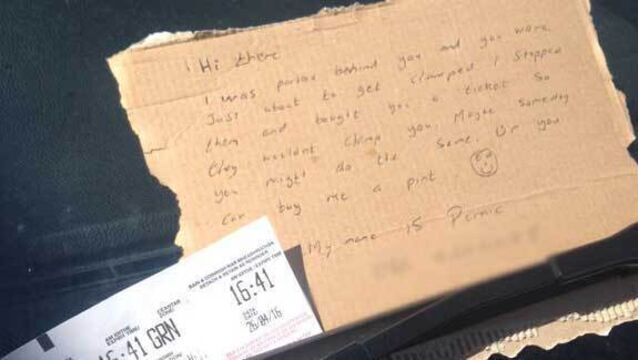 Hi there
I was parked behind you and you were
Just about to get clamped I stopped
them and bought you a ticket so
they wouldnt clamp you. Maybe someday
you might do the same. Or you
can buy me a pint
My name is
16:41
16:41 GRN
26/04/16